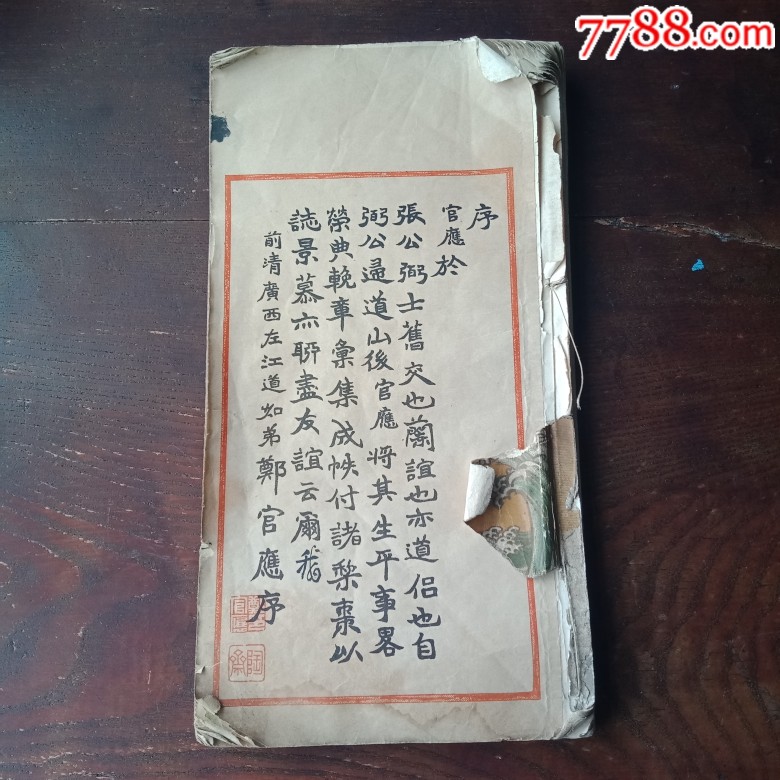 7788.com
序
官應於
張公弼士舊交也蘭誼也亦道侶也自
弼公歸道山後官應將其生平事畧
榮典輓章彙集成帙付諸棃棗以
誌景慕亦聊盡友誼云爾
前清廣西左江道如弟鄭官應序